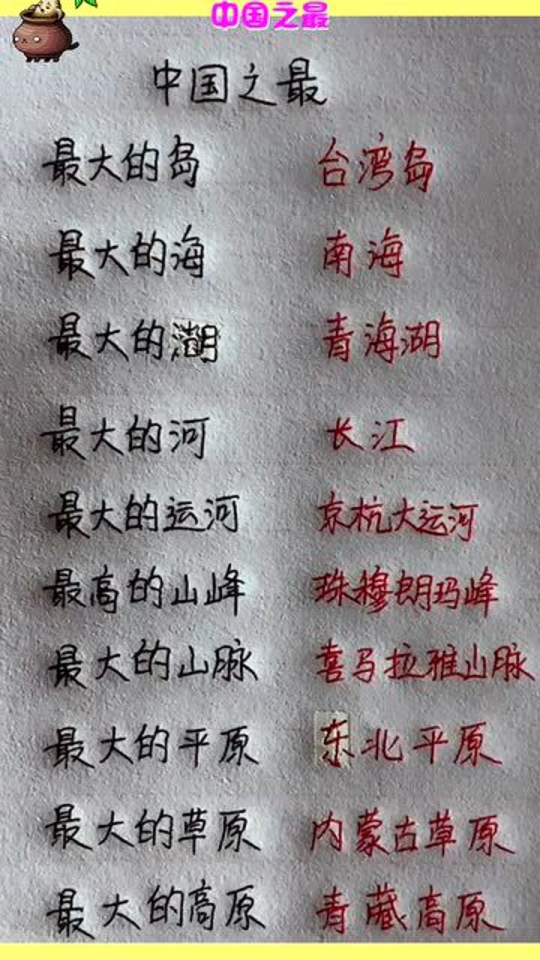 中国之最
中国之最
最大的岛 台湾岛
最大的海 南海
最大的湖 青海湖
最大的河 长江
最大的运河 京杭大运河
最高的山峰 珠穆朗玛峰
最大的山脉 喜马拉雅山脉
最大的平原 东北平原
最大的草原 内蒙古草原
最大的高原 青藏高原